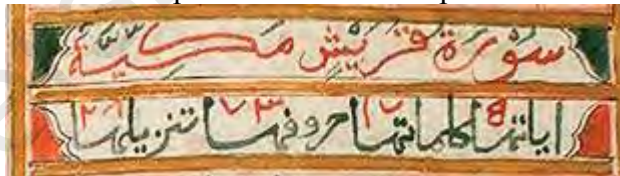 سورة قريش مكية
اياتها ۴ كلماتها ١٧ حروفها ٧٣ تنزيلها ٢٩